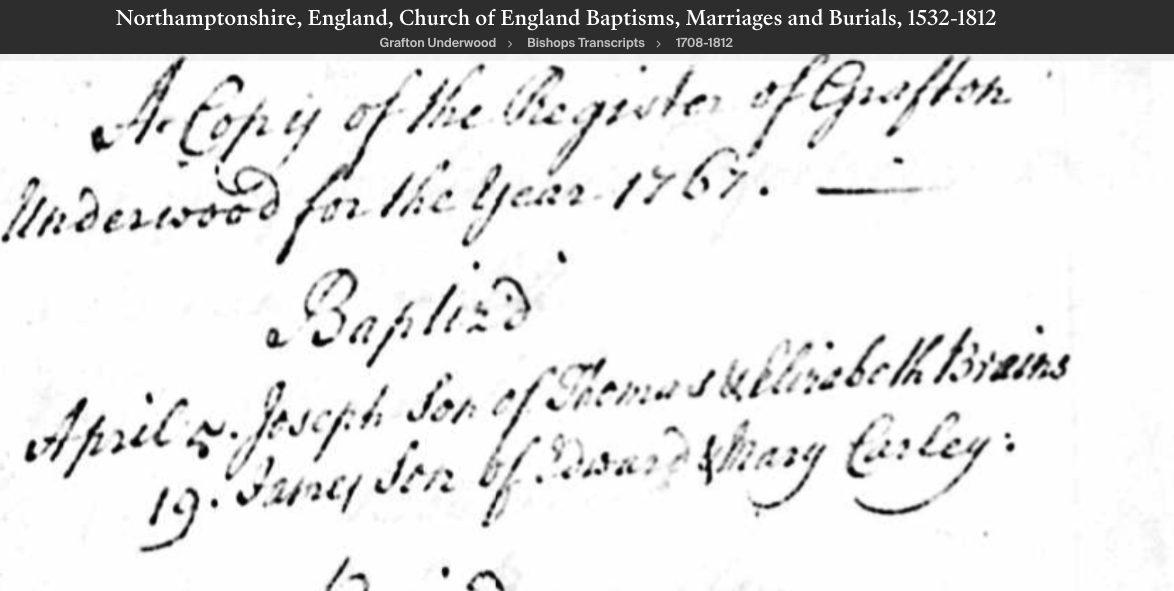 Northamptonshire, England, Church of England Baptisms, Marriages and Burials, 1532-1812
Grafton Underwood > Bishops Transcripts > 1708-1812
A Copy of the Register of Grafton
Underwood for the Year 1767. —
Baptiz'd
April 5. Joseph Son of Thomas & Elizabeth Brains
19. James Son of Edward & Mary Carley: